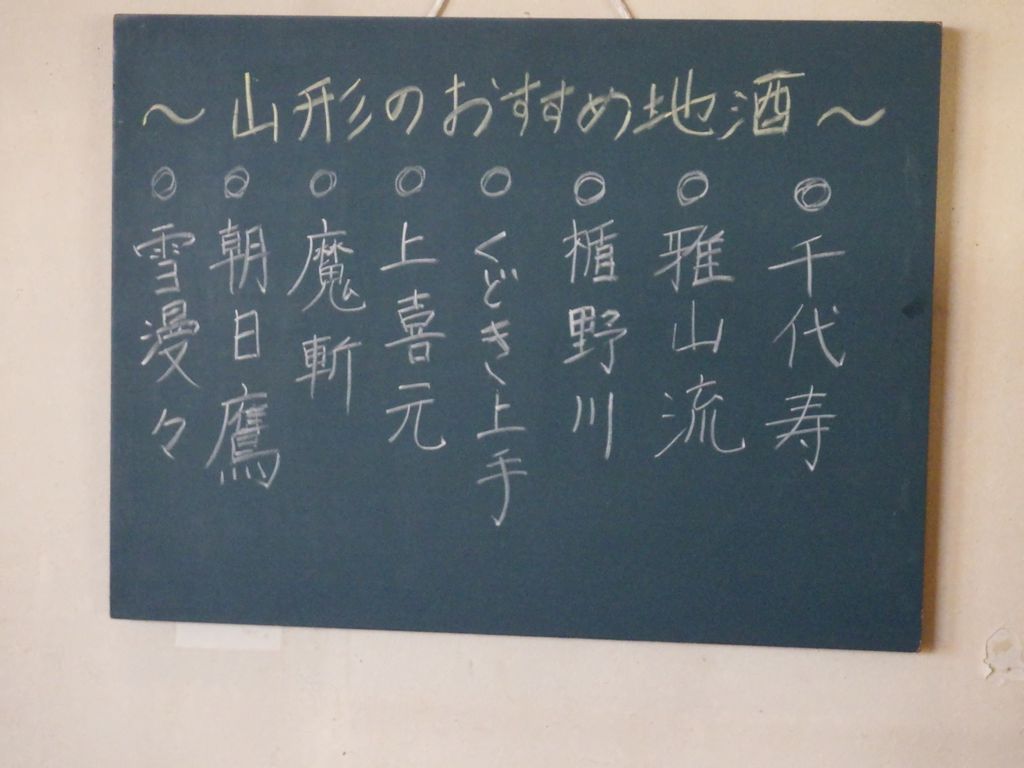 ～山形のおすすめ地酒～
○千代寿
○雅山流
○楯野川
○くどき上手
○上喜元
○魔斬
○朝日鷹
○雪漫々